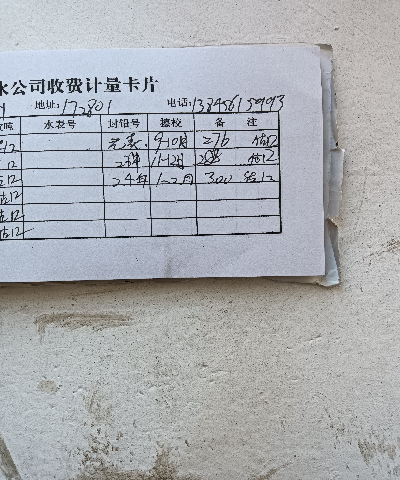 水公司收费计量卡片
地址:172801 电话:13845615993
吨 水表号 封铅号 接校 备 注
12 完表 9-10月 276 估12
12 11-12月 估12
12 24年 1-2月 300 估12
估12
估12
估12